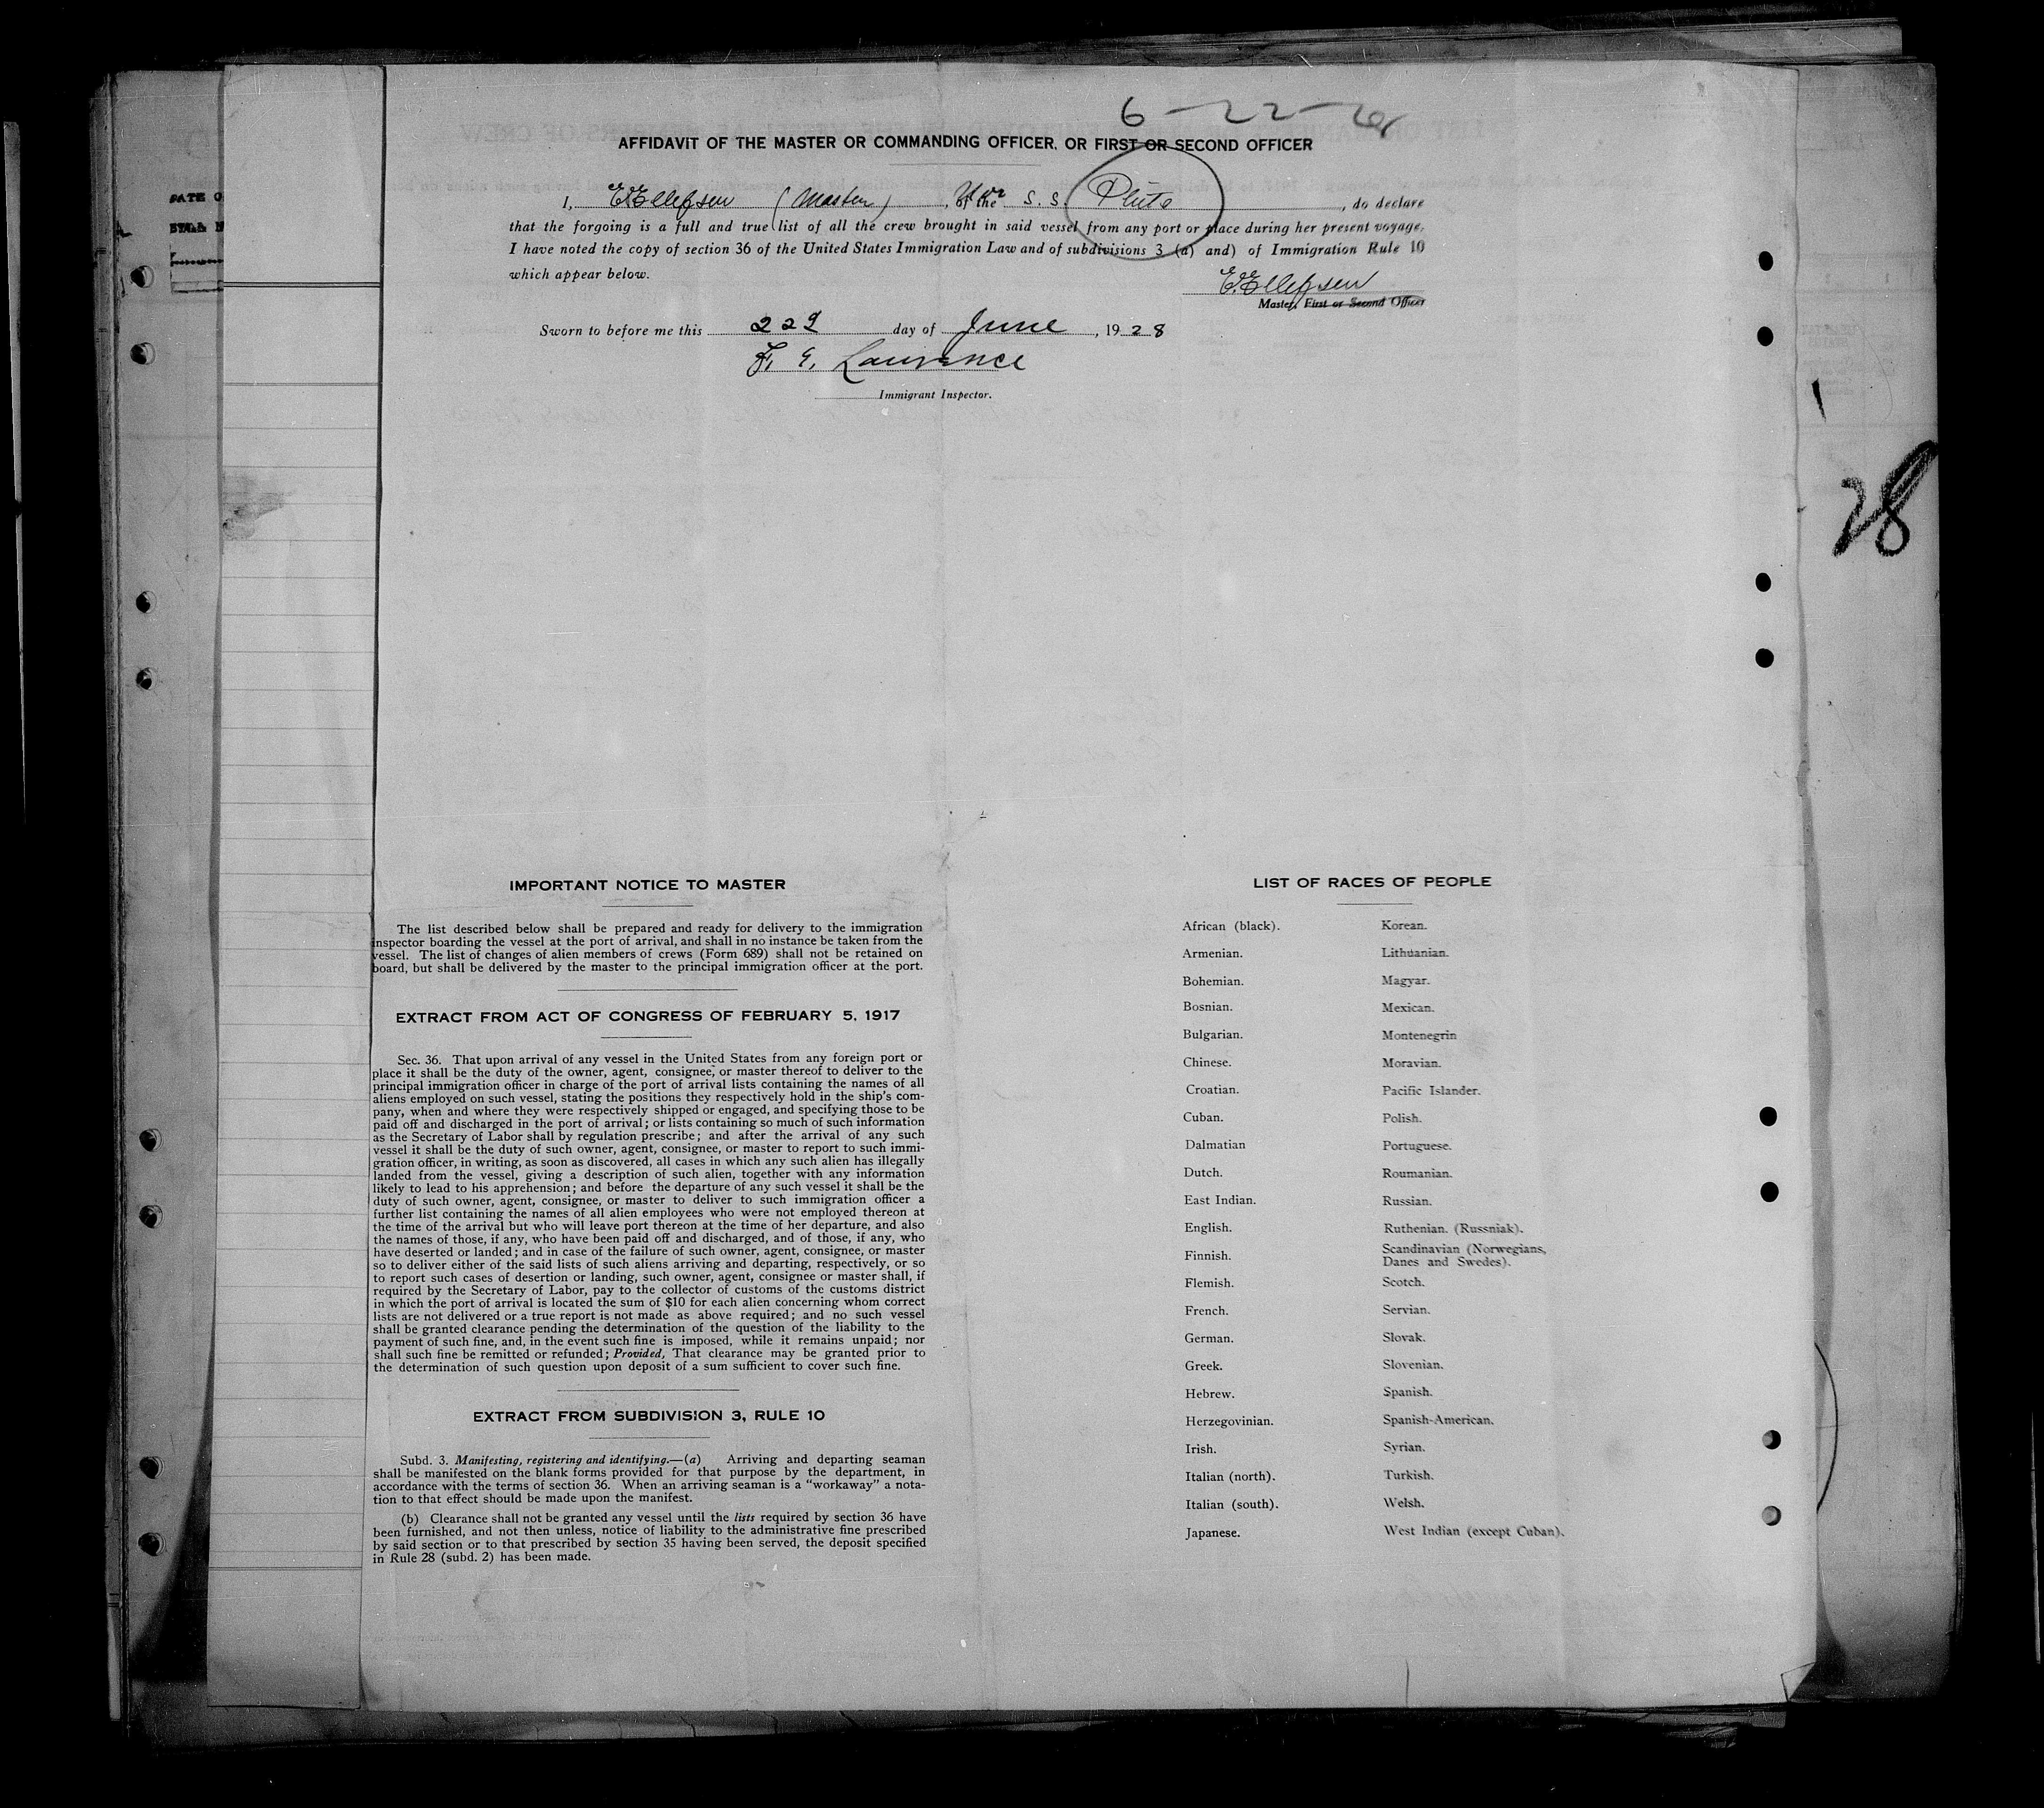 6-22-28
AFFIDAVIT OF THE MASTER OR COMMANDING OFFICER, OR FIRST OR SECOND OFFICER
DATE O
I, E. Ellefsen (Master), of the S. S. Pluto, do declare
that the forgoing is a full and true list of all the crew brought in said vessel from any port or place during her present voyage.
I have noted the copy of section 36 of the United States Immigration Law and of subdivisions 3 (a) and) of Immigration Rule 10
which appear below.
E. Ellefsen
Master, First or Second Officer
Sworn to before me this 22d day of June, 1928
F. E. Lawrence
Immigrant Inspector.
28
IMPORTANT NOTICE TO MASTER
The list described below shall be prepared and ready for delivery to the immigration
inspector boarding the vessel at the port of arrival, and shall in no instance be taken from the
vessel. The list of changes of alien members of crews (Form 689) shall not be retained on
board, but shall be delivered by the master to the principal immigration officer at the port.
EXTRACT FROM ACT OF CONGRESS OF FEBRUARY 5, 1917
Sec. 36. That upon arrival of any vessel in the United States from any foreign port or
place it shall be the duty of the owner, agent, consignee, or master thereof to deliver to the
principal immigration officer in charge of the port of arrival lists containing the names of all
aliens employed on such vessel, stating the positions they respectively hold in the ship's com-
pany, when and where they were respectively shipped or engaged, and specifying those to be
paid off and discharged in the port of arrival; or lists containing so much of such information
as the Secretary of Labor shall by regulation prescribe; and after the arrival of any such
vessel it shall be the duty of such owner, agent, consignee, or master to report to such immi-
gration officer, in writing, as soon as discovered, all cases in which any such alien has illegally
landed from the vessel, giving a description of such alien, together with any information
likely to lead to his apprehension; and before the departure of any such vessel it shall be the
duty of such owner, agent, consignee, or master to deliver to such immigration officer a
further list containing the names of all alien employees who were not employed thereon at
the time of the arrival but who will leave port thereon at the time of her departure, and also
the names of those, if any, who have been paid off and discharged, and of those, if any, who
have deserted or landed; and in case of the failure of such owner, agent, consignee, or master
so to deliver either of the said lists of such aliens arriving and departing, respectively, or so
to report such cases of desertion or landing, such owner, agent, consignee or master shall, if
required by the Secretary of Labor, pay to the collector of customs of the customs district
in which the port of arrival is located the sum of $10 for each alien concerning whom correct
lists are not delivered or a true report is not made as above required; and no such vessel
shall be granted clearance pending the determination of the question of the liability to the
payment of such fine, and, in the event such fine is imposed, while it remains unpaid; nor
shall such fine be remitted or refunded; Provided, That clearance may be granted prior to
the determination of such question upon deposit of a sum sufficient to cover such fine.
EXTRACT FROM SUBDIVISION 3, RULE 10
Subd. 3. Manifesting, registering and identifying.—(a) Arriving and departing seaman
shall be manifested on the blank forms provided for that purpose by the department, in
accordance with the terms of section 36. When an arriving seaman is a "workaway" a nota-
tion to that effect should be made upon the manifest.
(b) Clearance shall not be granted any vessel until the lists required by section 36 have
been furnished, and not then unless, notice of liability to the administrative fine prescribed
by said section or to that prescribed by section 35 having been served, the deposit specified
in Rule 28 (subd. 2) has been made.
LIST OF RACES OF PEOPLE
African (black).
Armenian.
Bohemian.
Bosnian.
Bulgarian.
Chinese.
Croatian.
Cuban.
Dalmatian
Dutch.
East Indian.
English.
Finnish.
Flemish.
French.
German.
Greek.
Hebrew.
Herzegovinian.
Irish.
Italian (north).
Italian (south).
Japanese.
Korean.
Lithuanian.
Magyar.
Mexican.
Montenegrin
Moravian.
Pacific Islander.
Polish.
Portuguese.
Roumanian.
Russian.
Ruthenian. (Russniak).
Scandinavian (Norwegians,
Danes and Swedes).
Scotch.
Servian.
Slovak.
Slovenian.
Spanish.
Spanish-American.
Syrian.
Turkish.
Welsh.
West Indian (except Cuban).